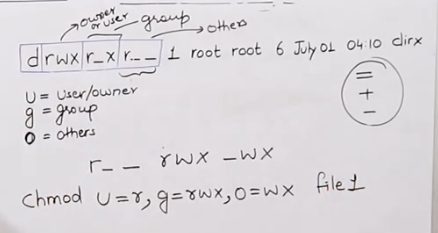 owner or user group others
drwxr_xr__ 1 root root 6 July 01 04:10 dirx
U = User/owner
g = group
O = others
=
+
-
r__ rwx _wx
Chmod U=r, g=rwx, O=wx file1